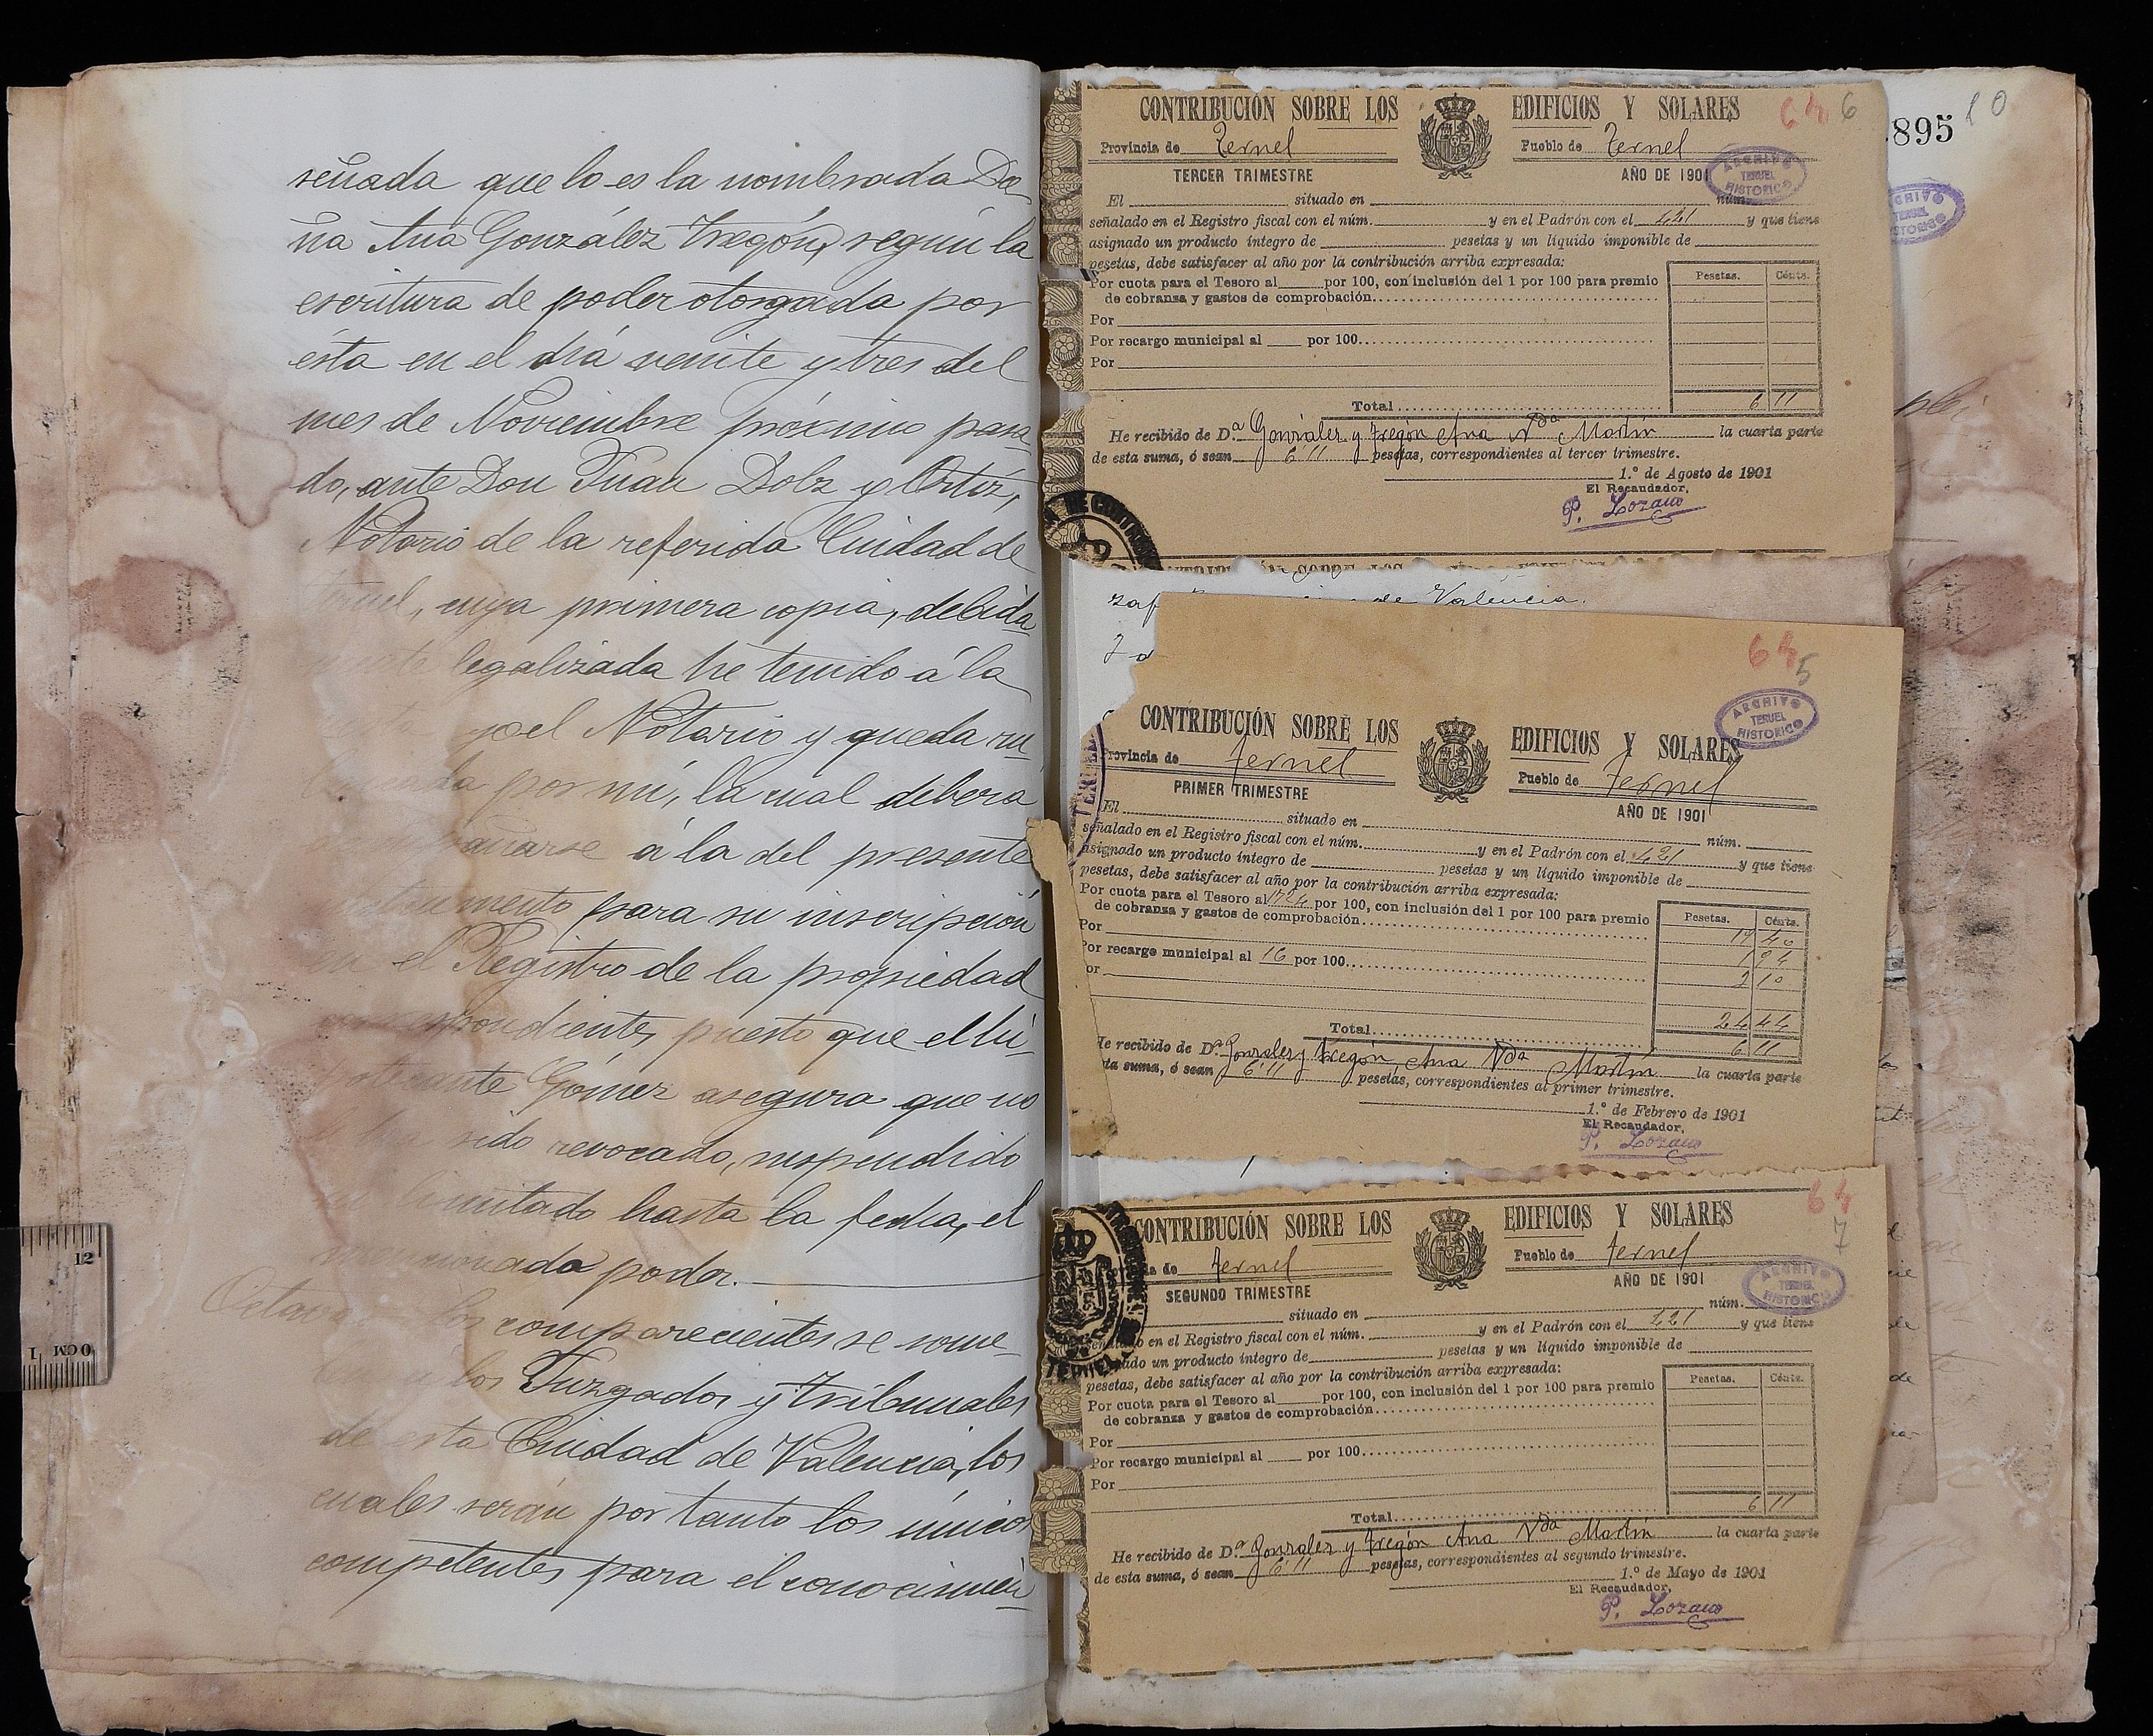 señada que lo es la nombrada Do-
ña Ana González Yregón, según la
escritura de poder otorgada por
ésta en el dia veinte y tres del
mes de Noviembre próximo pasa
do, ante Don Juan Dolz y Ortiz,
Notario de la referida Ciudad de
Teruel, cuya primera copia, debida
legalizada he tenido á la
yo el Notario y queda ru-
por mi, la cual deberá
á la del presente
para su inscripción
en el Registro de la propiedad
correspondiente, puesto que el Sr.
Gómez asegura que no
ha sido revocado, suspendido
limitado hasta la fecha, el
mencionado poder.
Octava los comparecientes se some-
los Juzgados y tribunales
de esta Ciudad de Valencia, los
cuales serán por tanto los únicos
competentes para el conocimien
CONTRIBUCIÓN SOBRE LOS EDIFICIOS Y SOLARES
64 6
Provincia de Teruel Pueblo de Teruel
TERCER TRIMESTRE AÑO DE 1901
ARCHIVO TERUEL HISTORICO
El situado en núm.
señalado en el Registro fiscal con el núm. y en el Padrón con el 421 y que tiene
asignado un producto íntegro de pesetas y un líquido imponible de
pesetas, debe satisfacer al año por la contribución arriba expresada:
Pesetas. Cénts.
Por cuota para el Tesoro al por 100, con inclusión del 1 por 100 para premio
de cobranza y gastos de comprobación
Por
Por recargo municipal al por 100
Por
Total 6 11
He recibido de D.ª Gonzalez y Yregón Ana Vda Martín la cuarta parte
de esta suma, ó sean 6'11 pesetas, correspondientes al tercer trimestre.
1.º de Agosto de 1901
El Recaudador,
P. Lozano
895 10
de Valencia.
64 5
ARCHIVO TERUEL HISTORICO
CONTRIBUCIÓN SOBRE LOS EDIFICIOS Y SOLARES
Provincia de Teruel Pueblo de Teruel
PRIMER TRIMESTRE AÑO DE 1901
El situado en núm.
señalado en el Registro fiscal con el núm. y en el Padrón con el 421 y que tiene
asignado un producto íntegro de pesetas y un líquido imponible de
pesetas, debe satisfacer al año por la contribución arriba expresada:
Pesetas. Cénts.
Por cuota para el Tesoro al por 100, con inclusión del 1 por 100 para premio
de cobranza y gastos de comprobación 17 40
Por
Por recargo municipal al 16 por 100
or 2 10
24 44
Total 6 11
He recibido de D.ª Gonzalez y Yregón, Ana Vda Martín la cuarta parte
ta suma, ó sean 6'11 pesetas, correspondientes al primer trimestre.
1.º de Febrero de 1901
El Recaudador,
P. Lozano
64 7
CONTRIBUCIÓN SOBRE LOS EDIFICIOS Y SOLARES
ia de Teruel Pueblo de Teruel
SEGUNDO TRIMESTRE AÑO DE 1901
ARCHIVO TERUEL HISTORICO
situado en núm.
señalado en el Registro fiscal con el núm. y en el Padrón con el 421 y que tiene
nado un producto íntegro de pesetas y un líquido imponible de
pesetas, debe satisfacer al año por la contribución arriba expresada:
Pesetas. Cénts.
Por cuota para el Tesoro al por 100, con inclusión del 1 por 100 para premio
de cobranza y gastos de comprobación
Por
Por recargo municipal al por 100
Por
Total 6 11
He recibido de D.ª Gonzalez y Yregón Ana Vda Martín la cuarta parte
de esta suma, ó sean 6'11 pesetas, correspondientes al segundo trimestre.
1.º de Mayo de 1901
El Recaudador,
P. Lozano